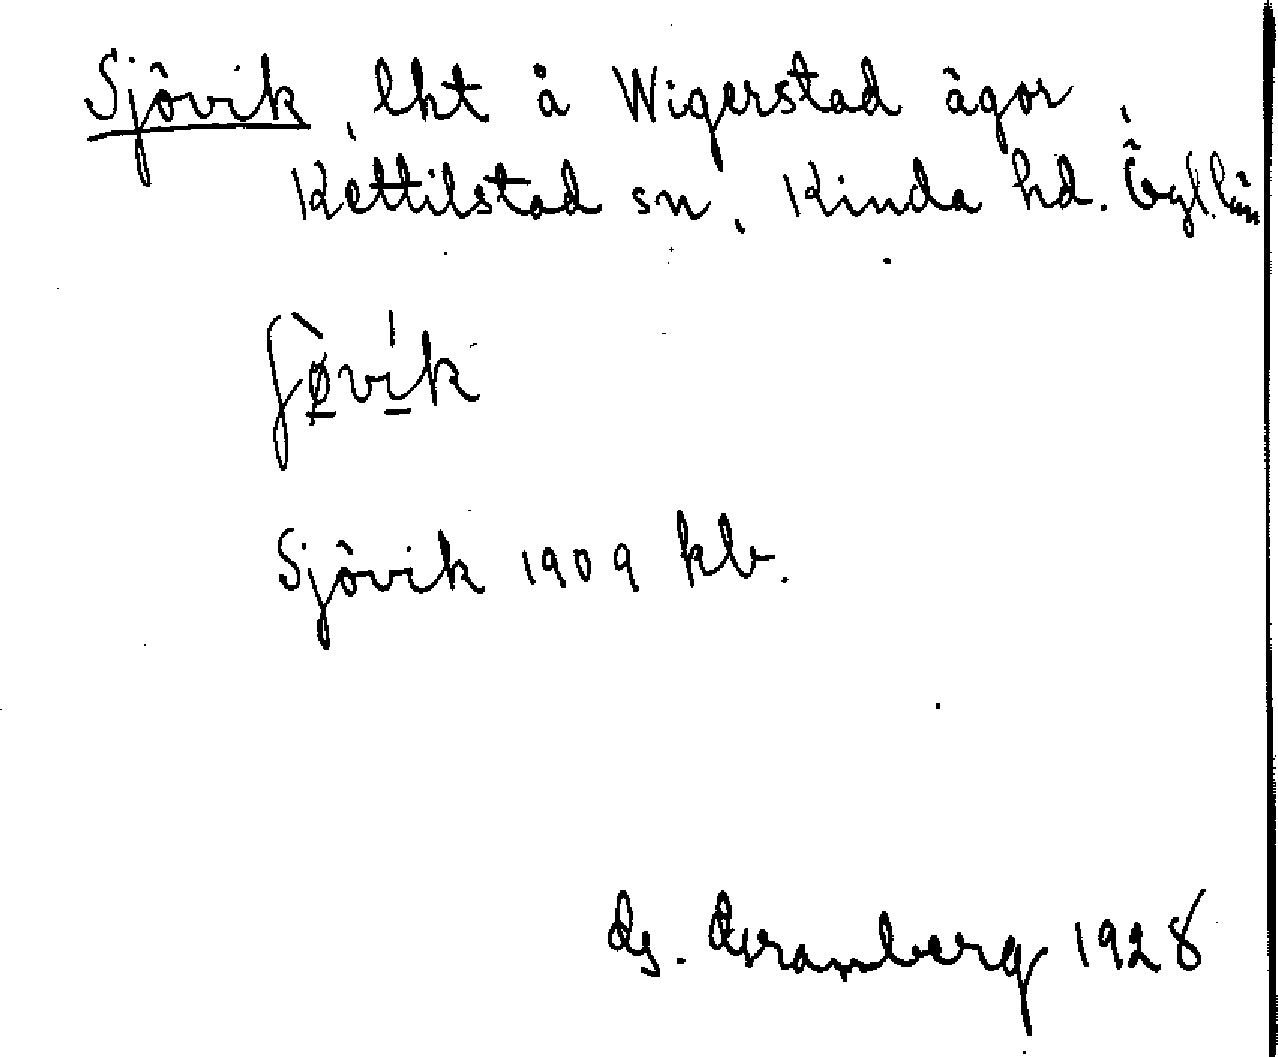 Sjövik, lht å Wigerstad ägor,
Kettilstad sn, Kinda hd. Ögl. län
Sjövik 1909 kb.
G. Granberg 1928